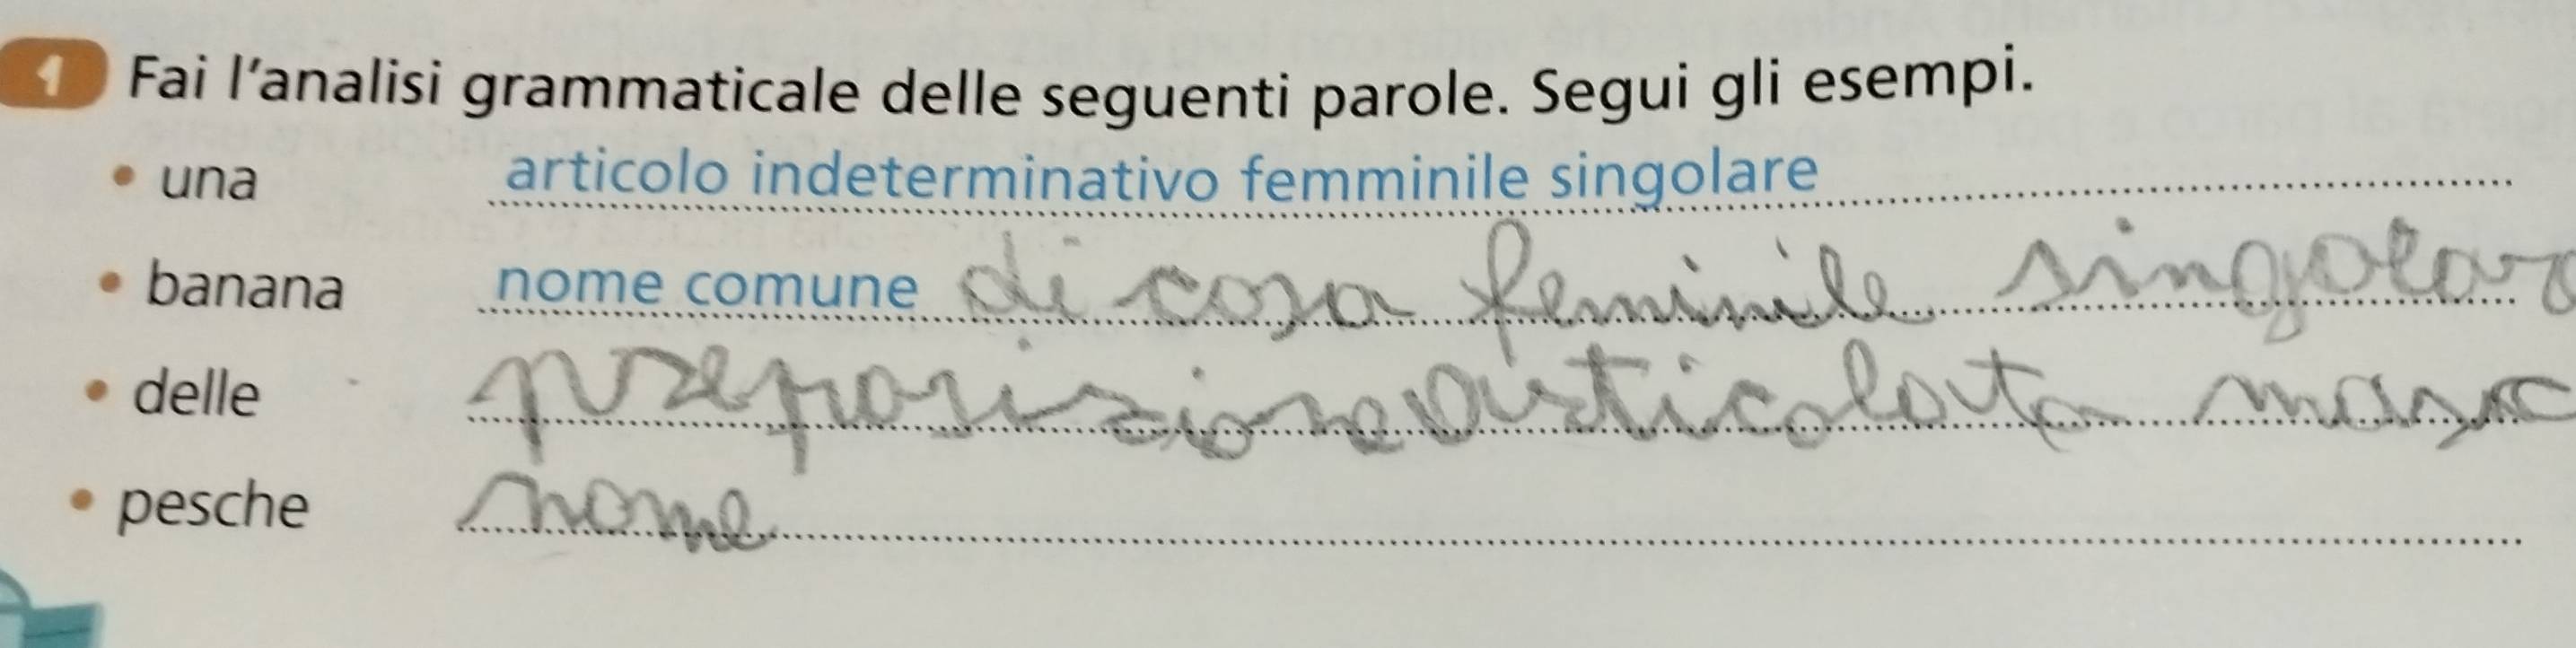 1 Fai l'analisi grammaticale delle seguenti parole. Segui gli esempi.
• una articolo indeterminativo femminile singolare
• banana nome comune di cosa feminile singolare
• delle preposizione articolata masc
• pesche nome